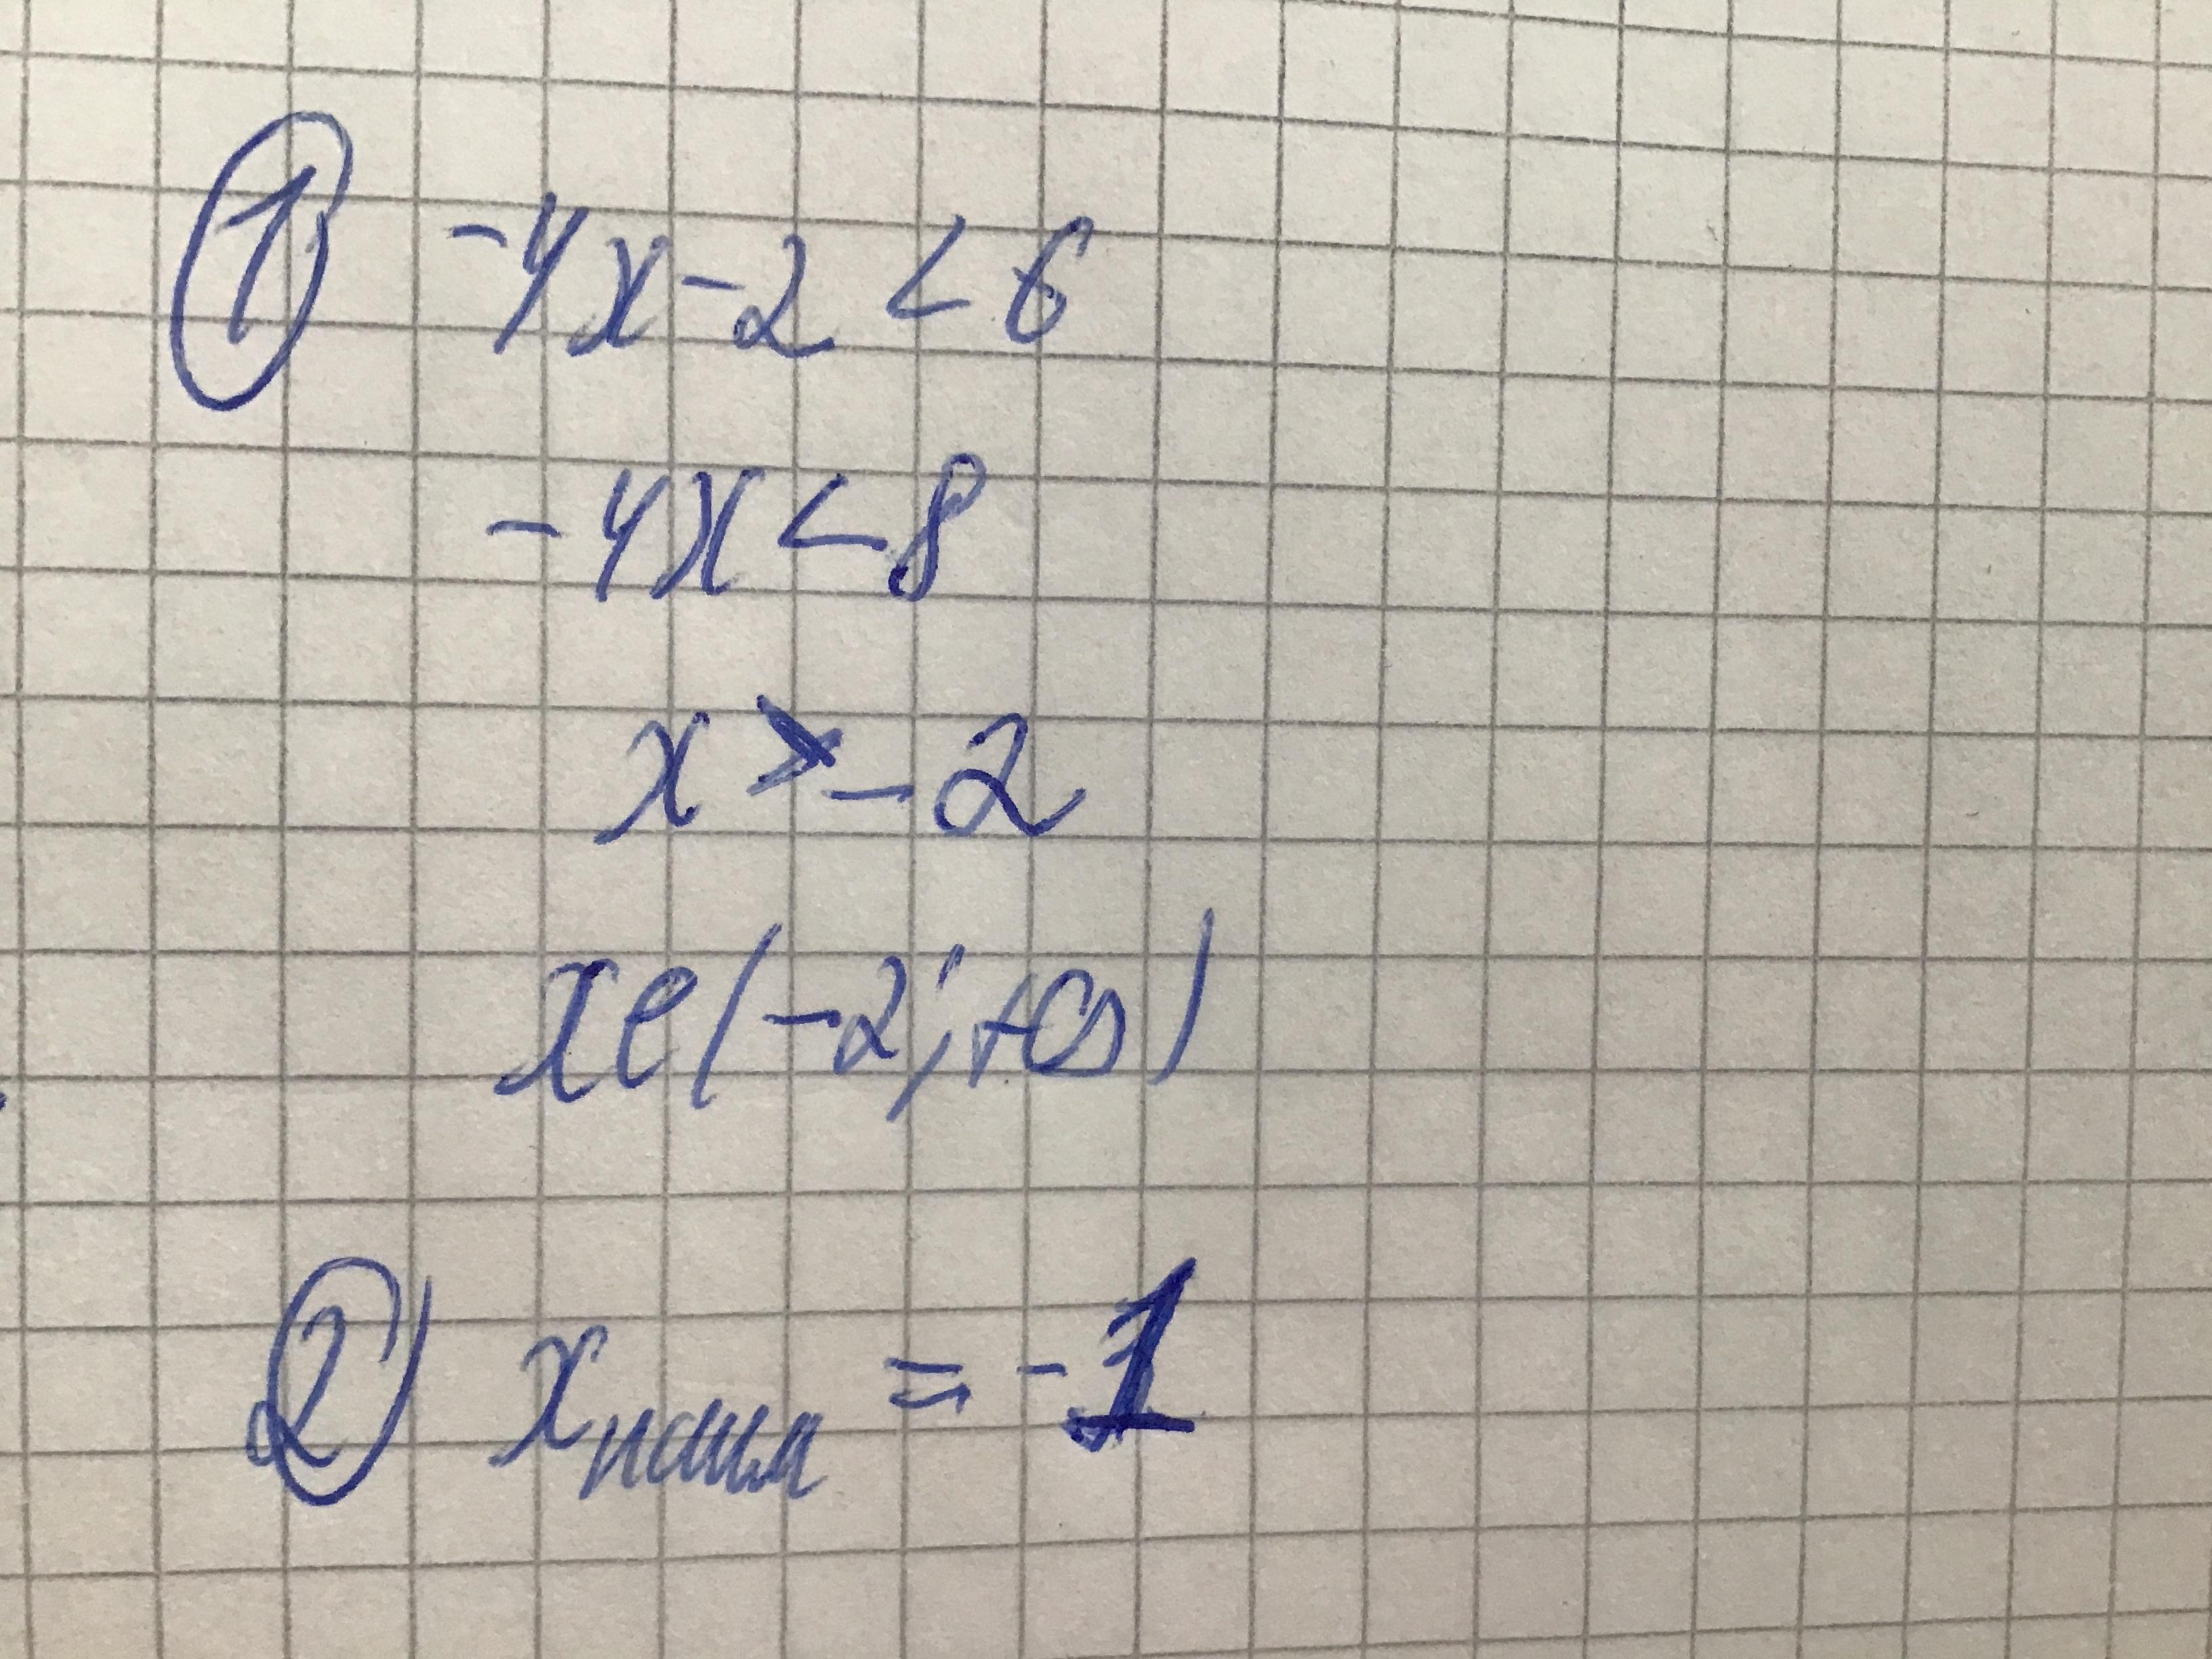 ① -4x-2<6
-4x<8
x>-2
x∈(-2;+∞)
② xнаим = -1